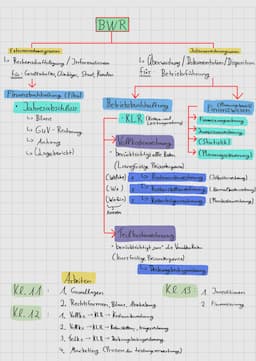 BWR
Externes
Internes
↳ Rechenschaftslegung / Informationen
↳ Überwachung / Dokumentation / Disposition
für Gesellschafter, Gläubiger, Staat, Kunden
für Betriebsführung
Finanzbuchhaltung (Fibu)
Betriebsbuchhaltung
· Jahresabschluss
↳ Bilanz
↳ GuV-Rechnung
↳ Anhang
↳ (Lagebericht)
· KLR (Kosten- und Leistungsrechnung)
Finanzierungsrechnung
Investitionsrechnung
(Statistik)
(Planungsrechnung)
Vollkostenrechnung
· berücksichtigt alle Kosten
(Langfristige Preisuntergrenze)
(Welche) 1. ↳ Kostenartenrechnung
(Wo) 2. ↳ Kostenstellenrechnung
(Wofür) 3. ↳ Kostenträgerrechnung
Kosten
Teilkostenrechnung
· berücksichtigt "nur" die Variablen Kosten
(kurzfristige Preisuntergrenze)
↳ Deckungsbeitragsrechnung
Arbeiten
Kl. 11: 1. Grundlagen
Kl. 13: 1. Investitionen
2. Rechtsformen, Bilanz,
2. Finanzierung
Kl. 12: 1. Vollko → KLR → Kostenartenrechnung
2. Vollko → KLR → Kostenstellen,
3. Teilko → KLR → Deckungsbeitragsrechnung
4. Marketing